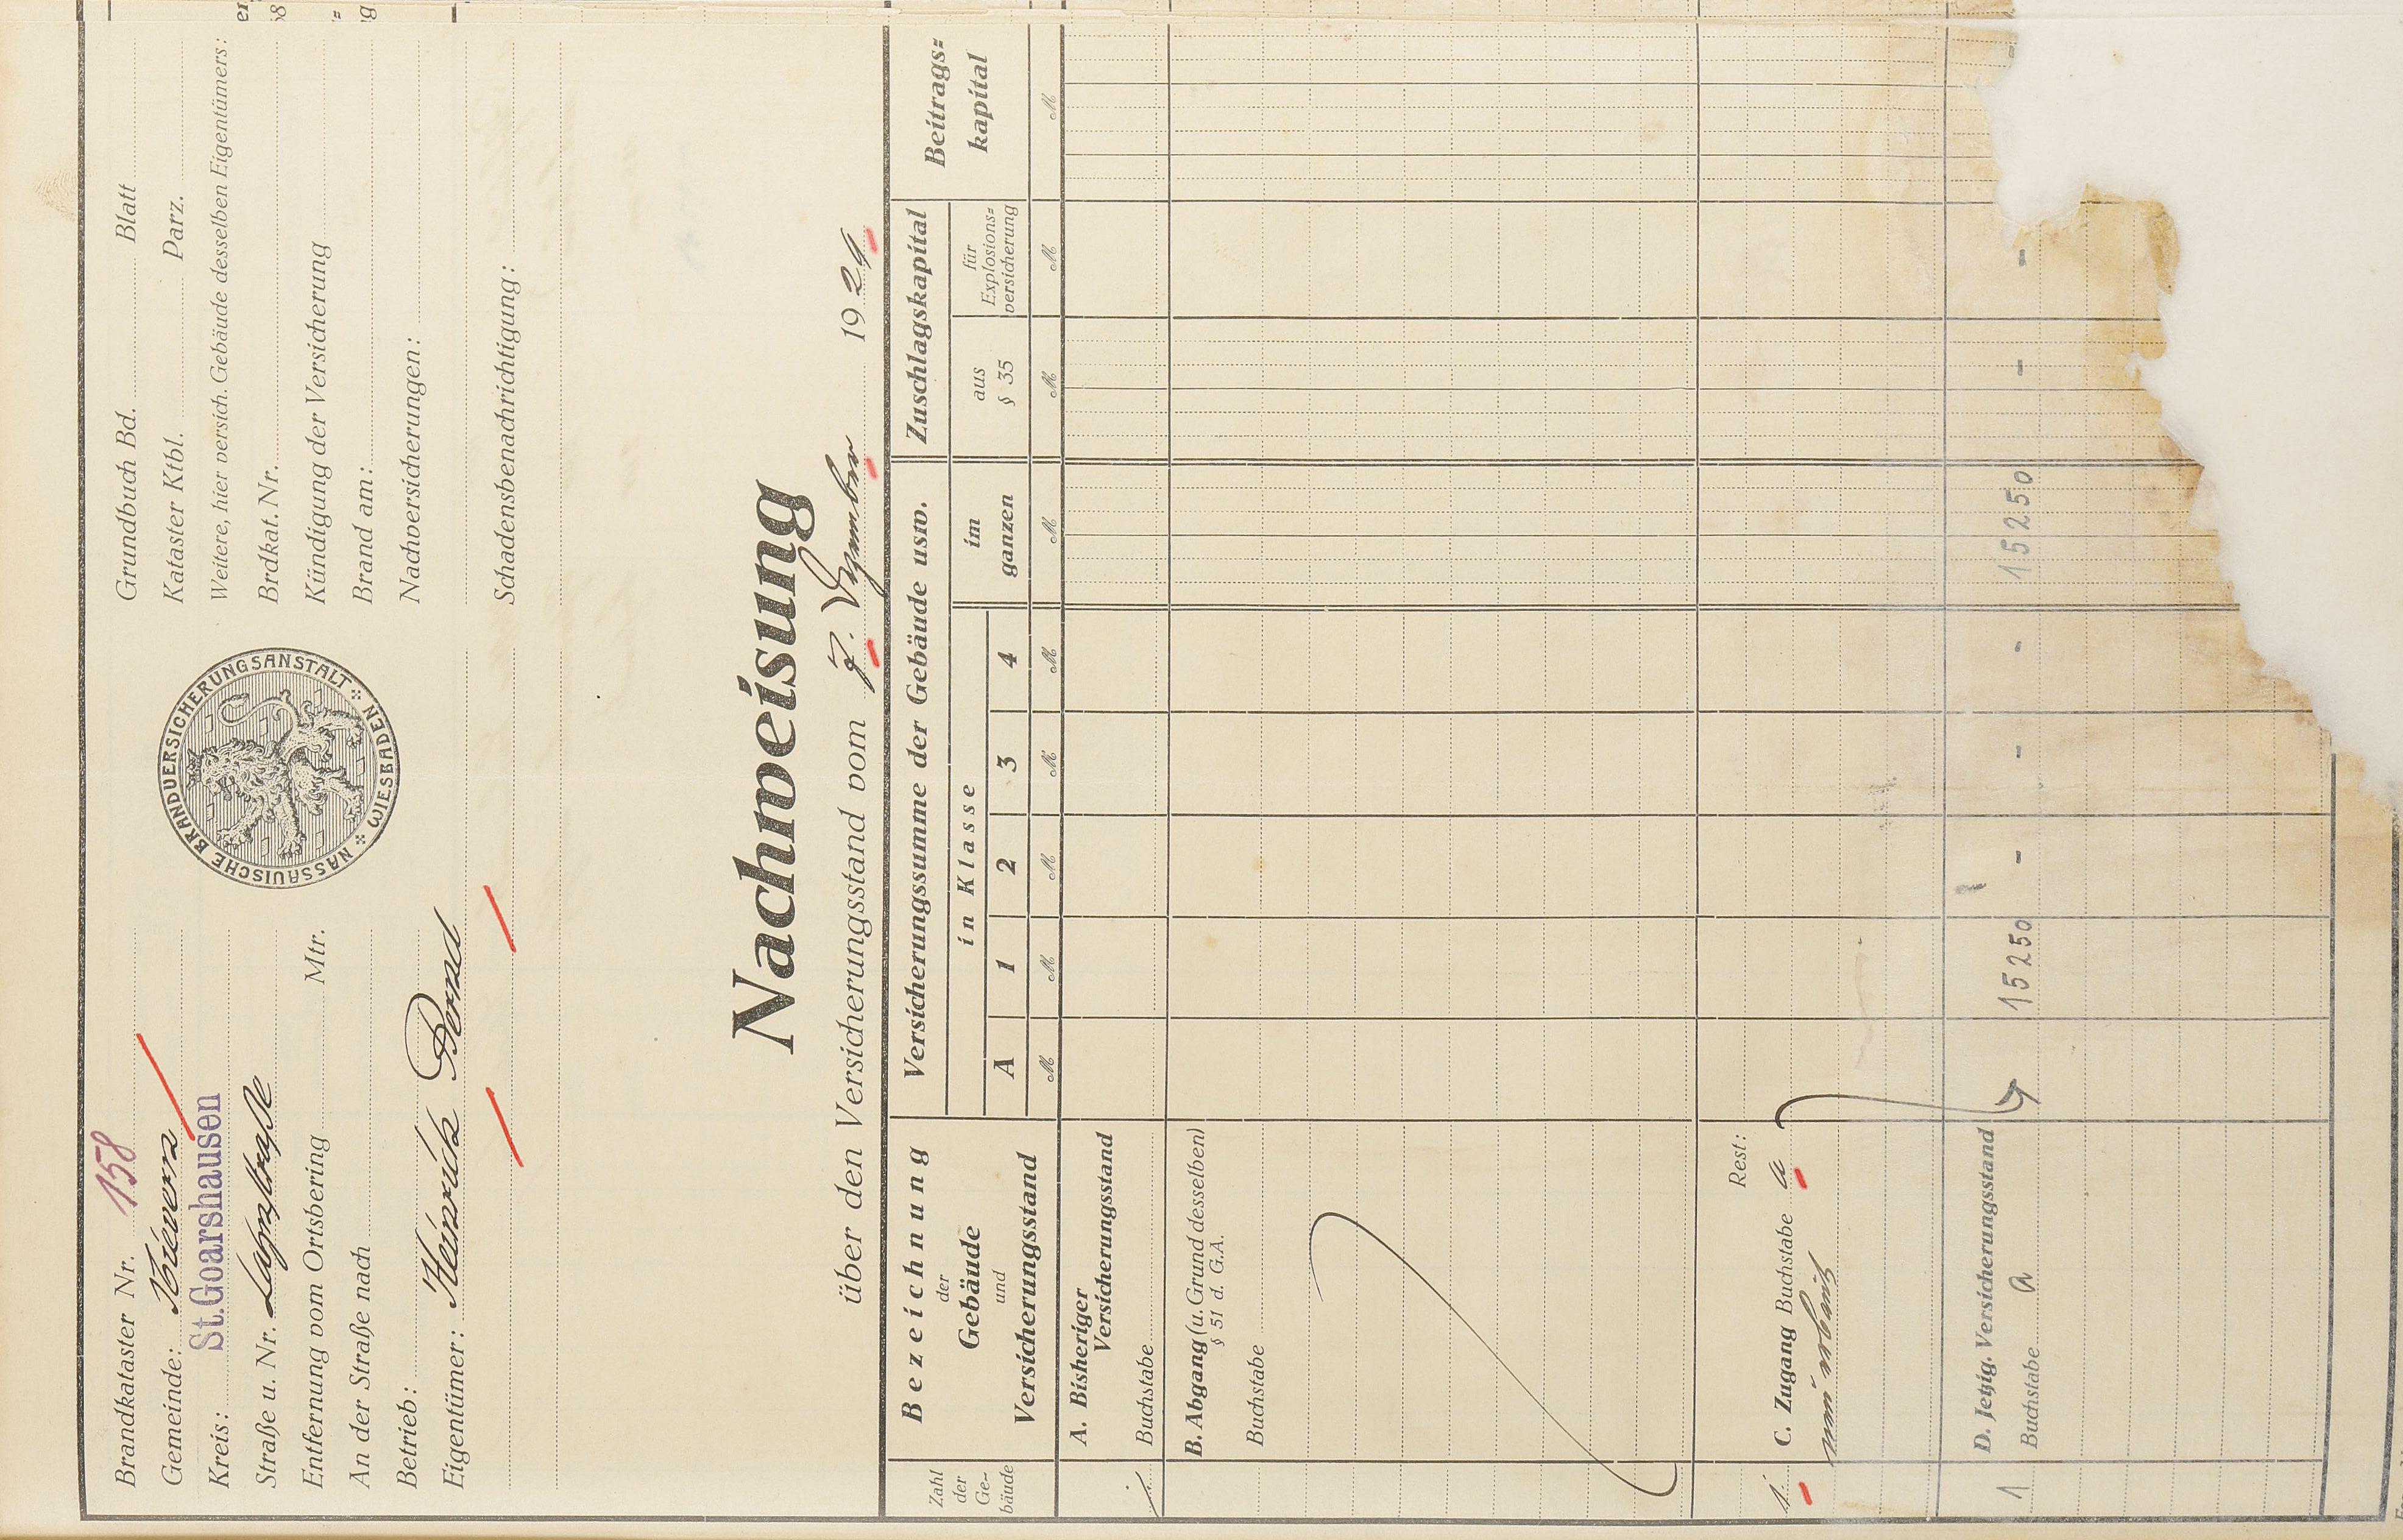 Brandkataster Nr. 158
Gemeinde: Nievern
Kreis: St. Goarshausen
Straße u. Nr. Lahnstraße
Entfernung vom Ortsbering Mtr.
An der Straße nach
Betrieb:
Eigentümer: Heinrich Bernd
NASSAUISCHE BRANDVERSICHERUNGSANSTALT
WIESBADEN
Grundbuch Bd. Blatt
Kataster Ktbl. Parz.
Weitere, hier versich. Gebäude desselben Eigentümers:
Brdkat. Nr.
Kündigung der Versicherung
Brand am:
Nachversicherungen:
Schadensbenachrichtigung:
Nachweisung
über den Versicherungsstand vom 7. Dezember 1929
Zahl der Ge-
bäude
Bezeichnung
der
Gebäude
und
Versicherungsstand
Versicherungssumme der Gebäude usw.
in Klasse
A 1 2 3 4
im
ganzen
Zuschlagskapital
aus
§ 35
für
Explosions=
versicherung
Beitrags=
kapital
M M M M M M M M M
A. Bisheriger
Versicherungsstand
Buchstabe
B. Abgang (u. Grund desselben)
§ 51 d. G.A.
Buchstabe
Rest:
1. C. Zugang Buchstabe a
neu erbaut
D. Jetzig. Versicherungsstand
1 Buchstabe a 15250 - - - 15250 - -